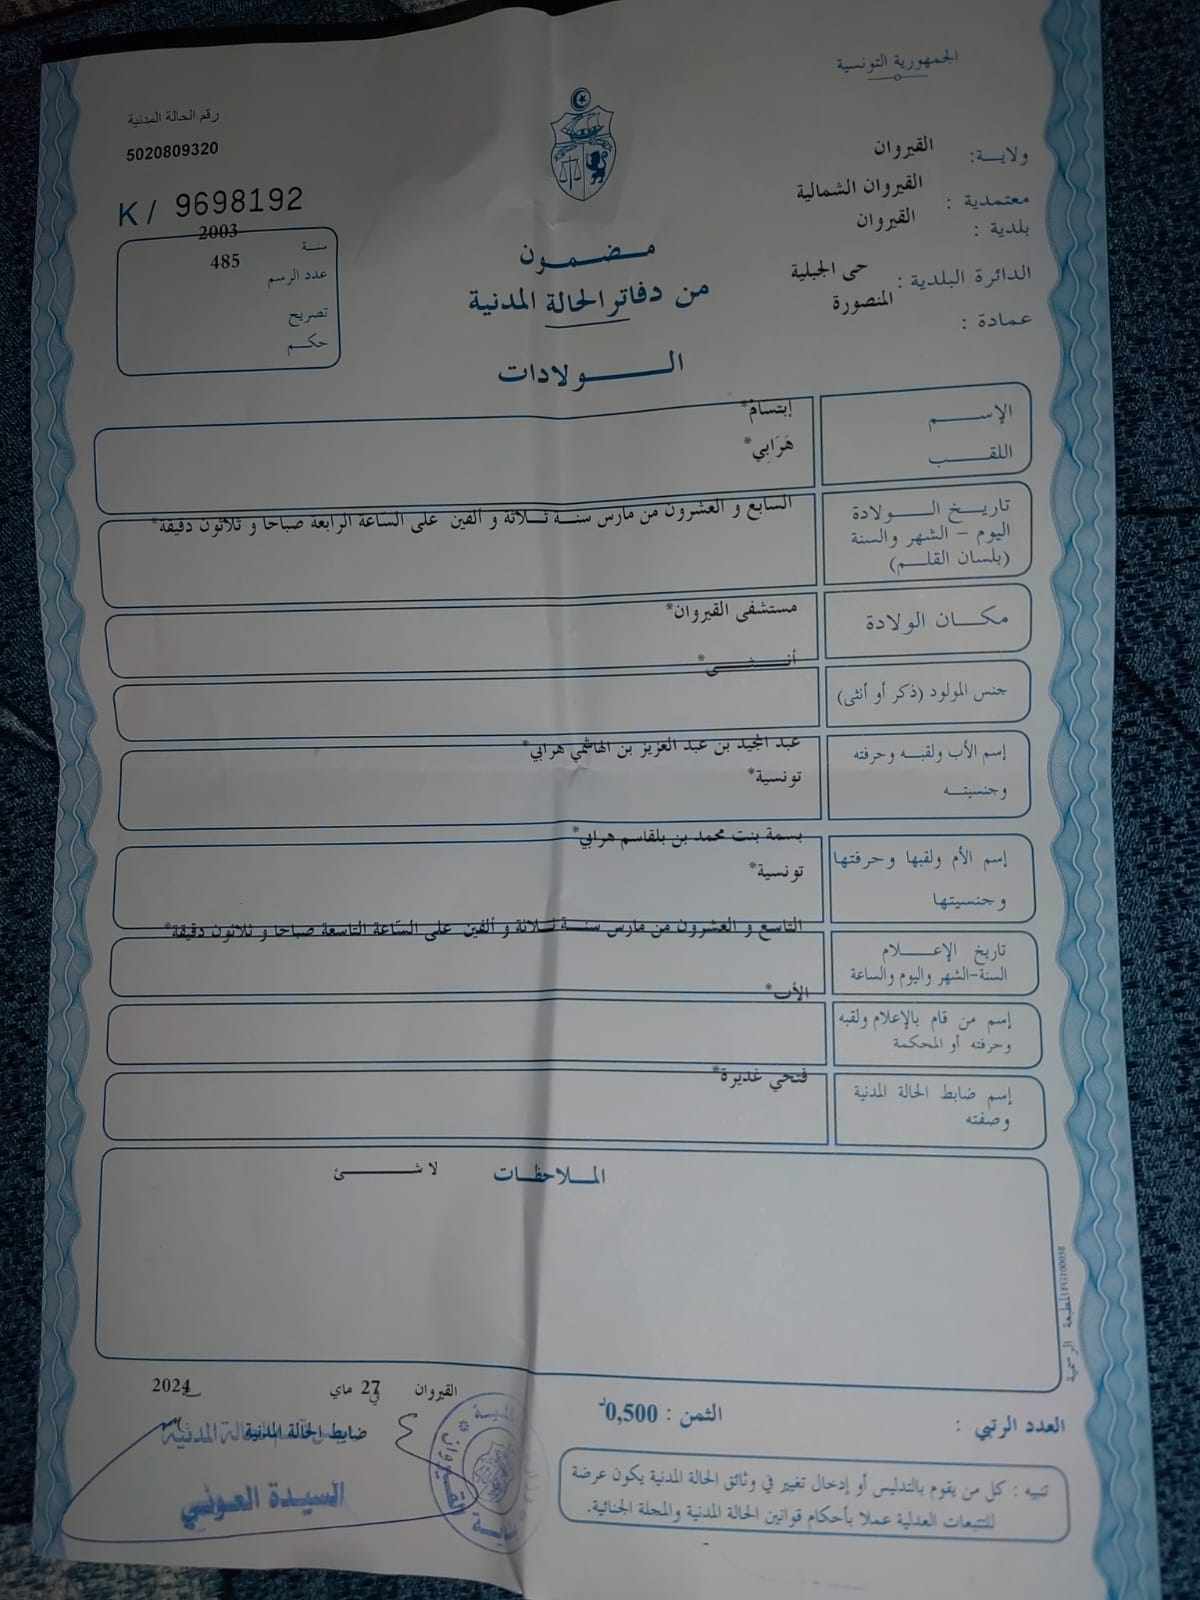 الجمهورية التونسية
ولاية: القيروان
معتمدية : القيروان الشمالية
بلدية : القيروان
الدائرة البلدية : حي الجبلية
عمادة : المنصورة
رقم الحالة المدنية
5020809320
K / 9698192
سنة 2003
عدد الرسم 485
تصريح
حكم
مضمون
من دفاتر الحالة المدنية
الولادات
الإسم إبتسام*
اللقب هَرَابِي*
تاريخ الولادة
اليوم - الشهر والسنة
(بلسان القلم)
السابع و العشرون من مارس سنة ثلاثة و ألفين على الساعة الرابعة صباحا و ثلاثون دقيقة*
مكان الولادة مستشفى القيروان*
جنس المولود (ذكر أو أنثى) أنثى*
إسم الأب ولقبه وحرفته عبد المجيد بن عبد العزيز بن الهاشمي هرابي*
وجنسيته تونسية*
إسم الأم ولقبها وحرفتها بسمة بنت محمد بن بلقاسم هرابي*
وجنسيتها تونسية*
تاريخ الإعلام
السنة-الشهر واليوم والساعة
التاسع و العشرون من مارس سنة ثلاثة و ألفين على الساعة التاسعة صباحا و ثلاثون دقيقة*
إسم من قام بالإعلام ولقبه
وحرفته أو المحكمة
الأب*
إسم ضابط الحالة المدنية
وصفته
فتحي غديرة*
الملاحظات لا شئ
القيروان في 27 ماي 2024
ضابط الحالة المدنية
السيدة العوني
العدد الرتبي :
الثمن : 0,500د
تنبيه : كل من يقوم بالتدليس أو إدخال تغيير في وثائق الحالة المدنية يكون عرضة
للتتبعات العدلية عملا بأحكام قوانين الحالة المدنية والمجلة الجنائية.
المطبعة الرسمية